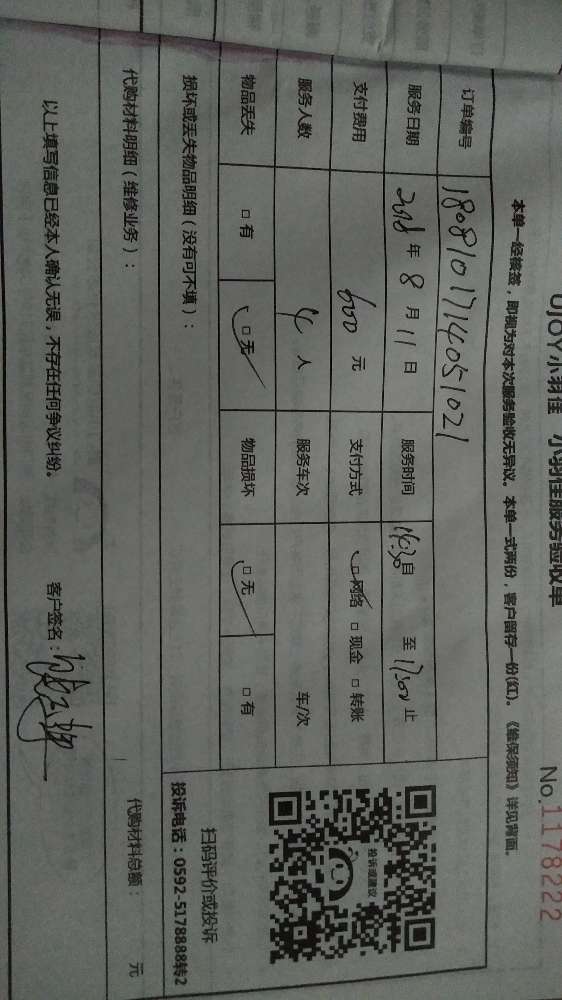 UJOY小羽佳 小羽佳服务验收单
No.1178222
本单一经核签，即视为对本次服务验收无异议。本单一式两份，客户留存一份(红)。《维保须知》详见背面。
订单编号 1808101714051021
服务日期 2018年8月11日 服务时间 14:30自 至17:00止
支付费用 600元 支付方式 □网络 □现金 □转账
服务人数 4人 服务车次 车/次
物品丢失 □有 □无 物品损坏 □无 □有
损坏或丢失物品明细（没有可不填）：
投诉或建议
扫码评价或投诉
投诉电话：0592-5178888转2
代购材料明细（维修业务）： 代购材料总额： 元
以上填写信息已经本人确认无误，不存在任何争议纠纷。 客户签名：